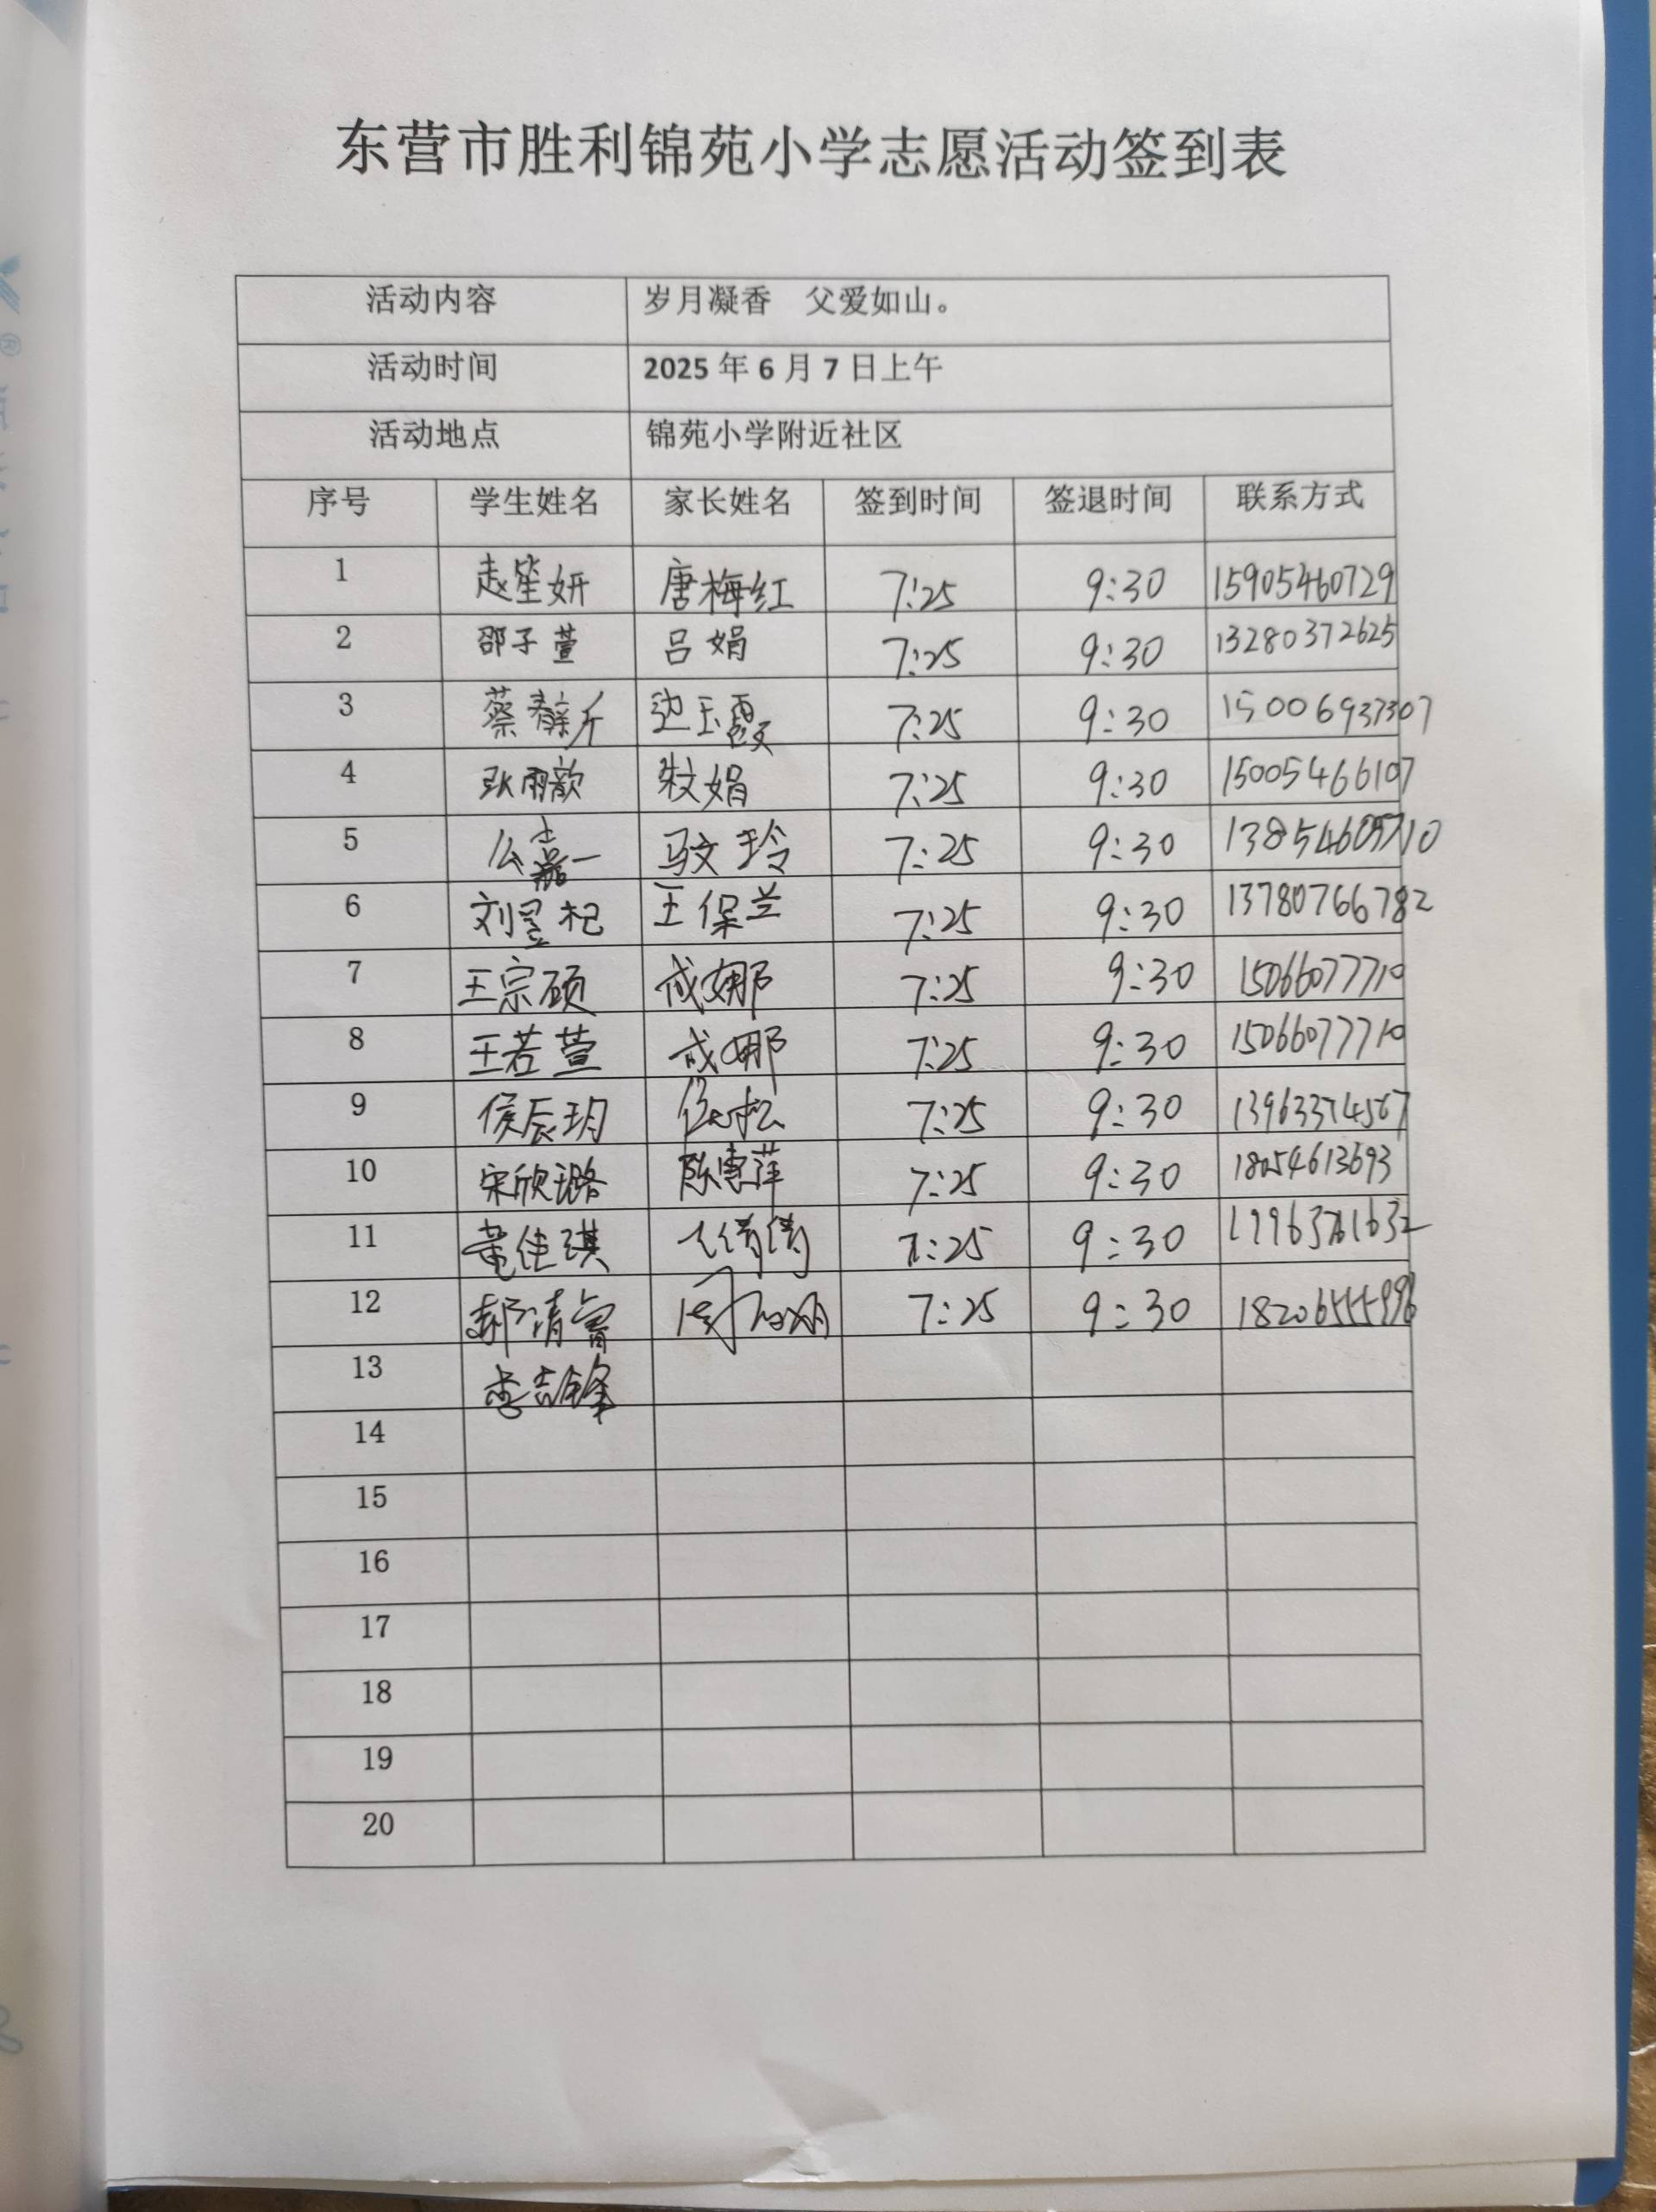 东营市胜利锦苑小学志愿活动签到表
活动内容 岁月凝香 父爱如山。
活动时间 2025年6月7日上午
活动地点 锦苑小学附近社区
序号 学生姓名 家长姓名 签到时间 签退时间 联系方式
1 赵笙妍 唐梅红 7:25 9:30 15905460729
2 邵子萱 吕娟 7:25 9:30 13280372625
3 蔡馨斤 边玉霞 7:25 9:30 15006937307
4 张雨歆 牧娟 7:25 9:30 15005466107
5 公嘉一 马文玲 7:25 9:30
6 刘昱杞 王保兰 7:25 9:30 13780766782
7 王宗硕 成娜 7:25 9:30 15066077710
8 王若萱 成娜 7:25 9:30 15066077710
9 侯辰玥 7:25 9:30 13963374567
10 宋欣璐 陈惠萍 7:25 9:30 18054613693
11 董佳琪 7:25 9:30
12 郝清睿 7:25 9:30
13 李志锋
14
15
16
17
18
19
20